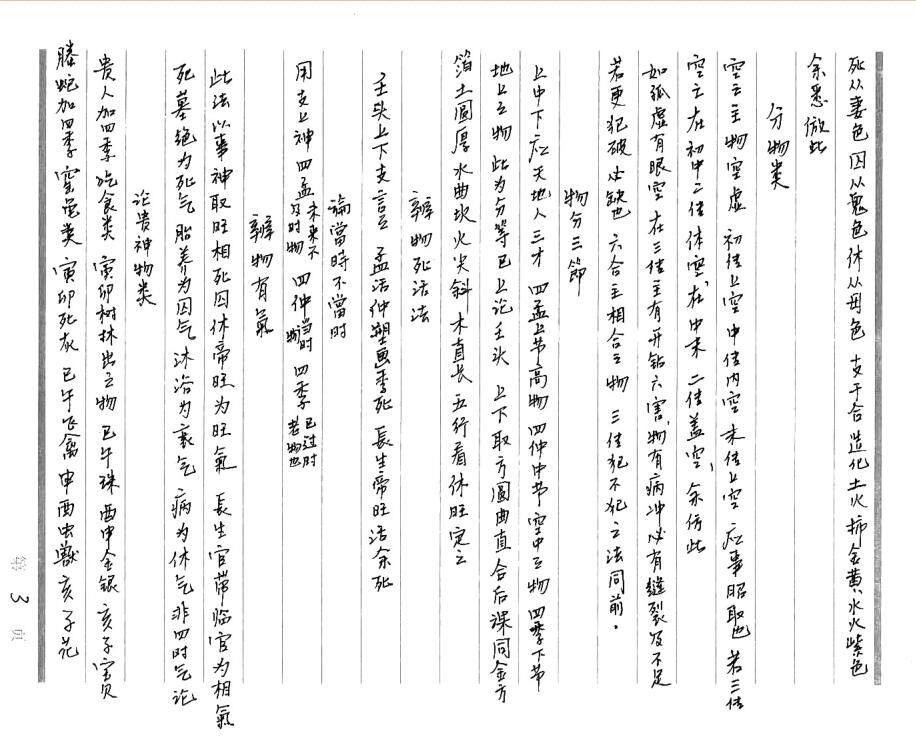 死从妻色 囚从鬼色 休从母色 支干合 造化土火 柿金黄 水火紫色
余悉倣此
分物类
空亡主物空虚 初传上空 中传内空 末传上空 应事昭取也 若三传
空亡在初中二传体空 在中末二传盖空 余仿此
如孤虚有眼空 在三传主有开钻六害 物有病冲必有缝裂及不足
若更犯破必缺也 六合主相合之物 三传犯不犯之法同前。
物分三節
上中下应天地人三才 四孟上节高物 四仲中节空中之物 四季下节
地上之物 此为分等已上论壬头 上下取方圆曲直合后课同金方
箔土圆厚 水曲坎火尖斜 木直長 五行看休旺定之
辦物死活法
壬头上下支言之 孟活仲塑画季死 長生帝旺活余死
論當時不當时
用支上神四孟未来不及时物 四仲当时物 四季已过时若物也
辦物有氣
此法以事神取旺相死囚休 帝旺为旺氣 長生官带临官为相氣
死墓绝为死气 胎养为囚气 沐浴为衰气 病为休气 非四时气论
论贵神物类
贵人加四季吃食类 寅卯树林出之物 巳午珠 酉申金银 亥子宝贝
螣蛇加四季窑器类 寅卯死灰 巳午飞禽 申酉虫獸 亥子花
第 3 页